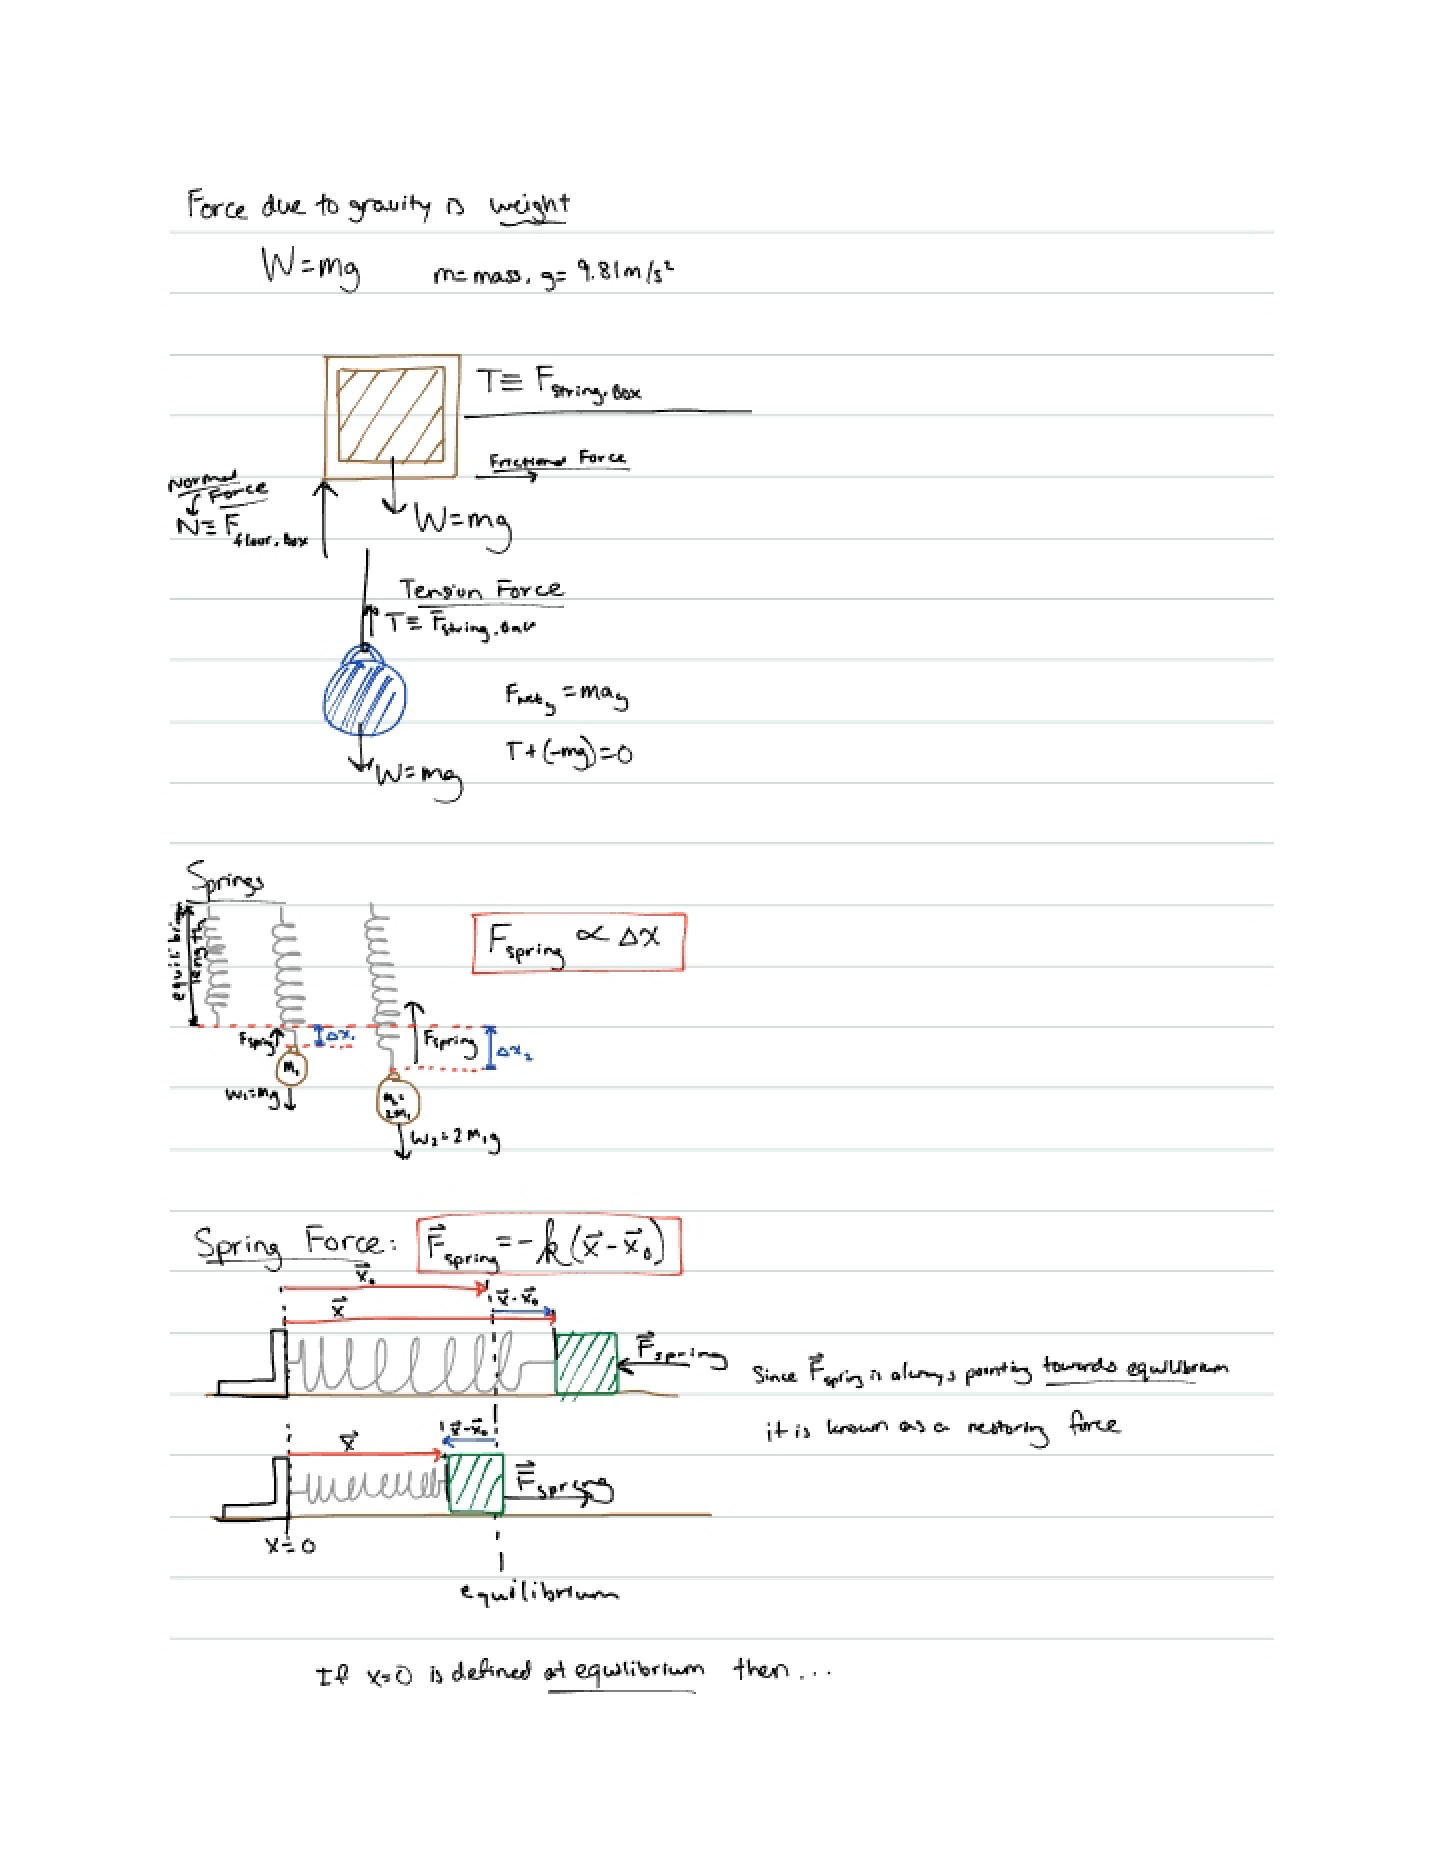 Force due to gravity is weight
W=mg m=mass, g= 9.81m/s²
T≡ F string, Box
Frictional Force
Normal
Force
N≡ F floor, Box
W=mg
Tension Force
T≡ F⃗ string, Ball
F net y = ma y
T+(-mg)=0
W=mg
Springs
equilibrium
length
F spring ∝ Δx
F spring
Δx₁
F spring
Δx₂
m₁
W₁=mg
m₂=
2m₁
W₂=2m₁g
Spring Force: F⃗ spring = -k(x⃗-x⃗₀)
x⃗₀
x⃗-x⃗₀
x⃗
F⃗ spring
Since F⃗ spring is always pointing towards equilibrium
it is known as a restoring force
x⃗-x⃗₀
x⃗
F⃗ spring
x=0
equilibrium
If x=0 is defined at equilibrium then...